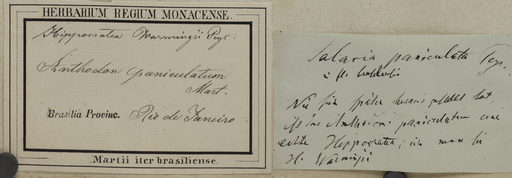 HERBARIUM REGIUM MONACENSE.
Hippocratea Warmingii Peyr.
Anthodon paniculatum
Mart.
Brasilia Provinc. Rio de Janeiro
Martii iter brasiliense.
Salacia paniculata Peyr.
Nr für später heraus hat
ist das Anthodon paniculatum eine
echte Hippocratea;
H. Warmingii